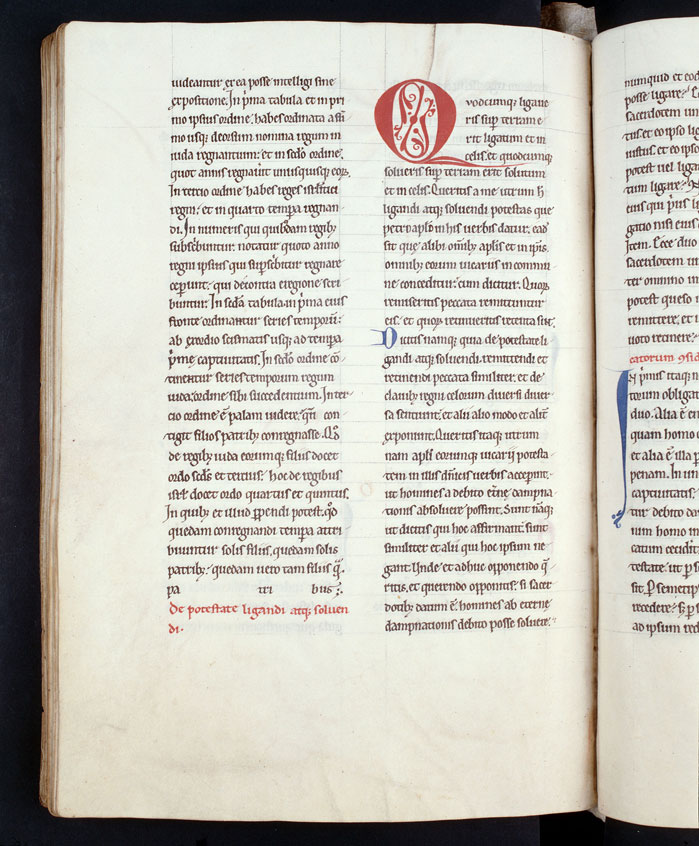 uideantur ex ea posse intelligi sine
expositione. In pͥma tabula et in pri
mo ipsius ordine, habes ordinata
mo usq; deorsum nomina regum in
iuda regnantium: et in sedo ordine,
quot annis regnauit unusquisq; eoꝝ.
In tercio ordine habes reges israel
regni: et in quarto tempa regnan
di. In numeris qui quibꝰdam regibꝫ
subscͥbuntur: notatur quoto anno
regni ipsius qui supscͥbitur regnare
ceperunt, qui decontra e regione scri
buntur. In secda tabula, in pͥma eius
fronte ordinantur series temporum:
ab exordio scismatis usq; ad tempa
pͥme captiuitatis. In sedo ordine cō
tinentur series temporum regum
iuda, ordine sibi succedentium. In ter
cio ordine ē palam uidere, qñ con
tigit filios patribꝫ conregnasse. Qd
de regibꝫ iuda eorumq; filiis docet
ordo secds et tertius: hoc de regibus
isrl docet ordo quartus et quintus.
In quibꝫ et illud ppendi potest, qd
quedam conregnandi tempa attri
buuntur solis filiis, quedam solis
patribꝫ: quedam uero tam filiis qͣ
pa tri bus;
De potestate ligandi atq; soluen
di.
Qvodcumq; ligaue
ris sup terram e
rit ligatum et in
celis, et quodcumq;
solueris sup terram erit solutum
et in celis. Queritis a me utrum h
ligandi atq; soluendi potestas que
petro aplo in his uerbis datur: eadē
sit que alibi omībꝫ aplis et in ipsis
omnibꝫ eorum uicariis in commu
ne conceditur, cum dicitur. Quoꝝ
remiseritis peccata remittuntur
eis, et quoꝝ retinueritis retenta sūt.
Dicitis namq; quia de potestate li
gandi atq; soluendi, remittendi et
retinendi peccata similiter, et de
clauibꝫ regni celorum diuersi diuer
sa sentiunt, et alii alio modo et alit̃
exponunt. Queritis itaq; utrum
nam apli eorumq; uicarii potesta
tem in illis dñicis uerbis acceperint,
ut homines a debito et̃ne dampna
tionis absoluere possint. Sunt nāq;
ut dicitis qui hoc affirmant: sunt
similiter et alii qui hoc ipsum ne
gant. Unde et adhuc opponendo q̄
ritis, et querendo opponitis: si sacer
dotibꝫ datum ē, homines ab eterne
dampnationis debito posse soluere:
numquid et eod
posse ligare?
sacerdotem un
tus, et eo ipso lig
iustus, et eo ipso
potest uel ligat
tum ligare?
eius qui pͥus li
gatio nisi eius
Item. Ecce duo
sacerdotem in
ter omnino in
potest queso
remittere, et
uoto retinere
catorum
In pͥmis itaq; n
torum obligat
duo. Alia ē en
quam homo
et alia ē illa p
penam. In un
captiuitatis,
tur debito da
ium homo in
catum cecidit
testate, ut p s
sit. P semetip
recedere:
ad ipsum red